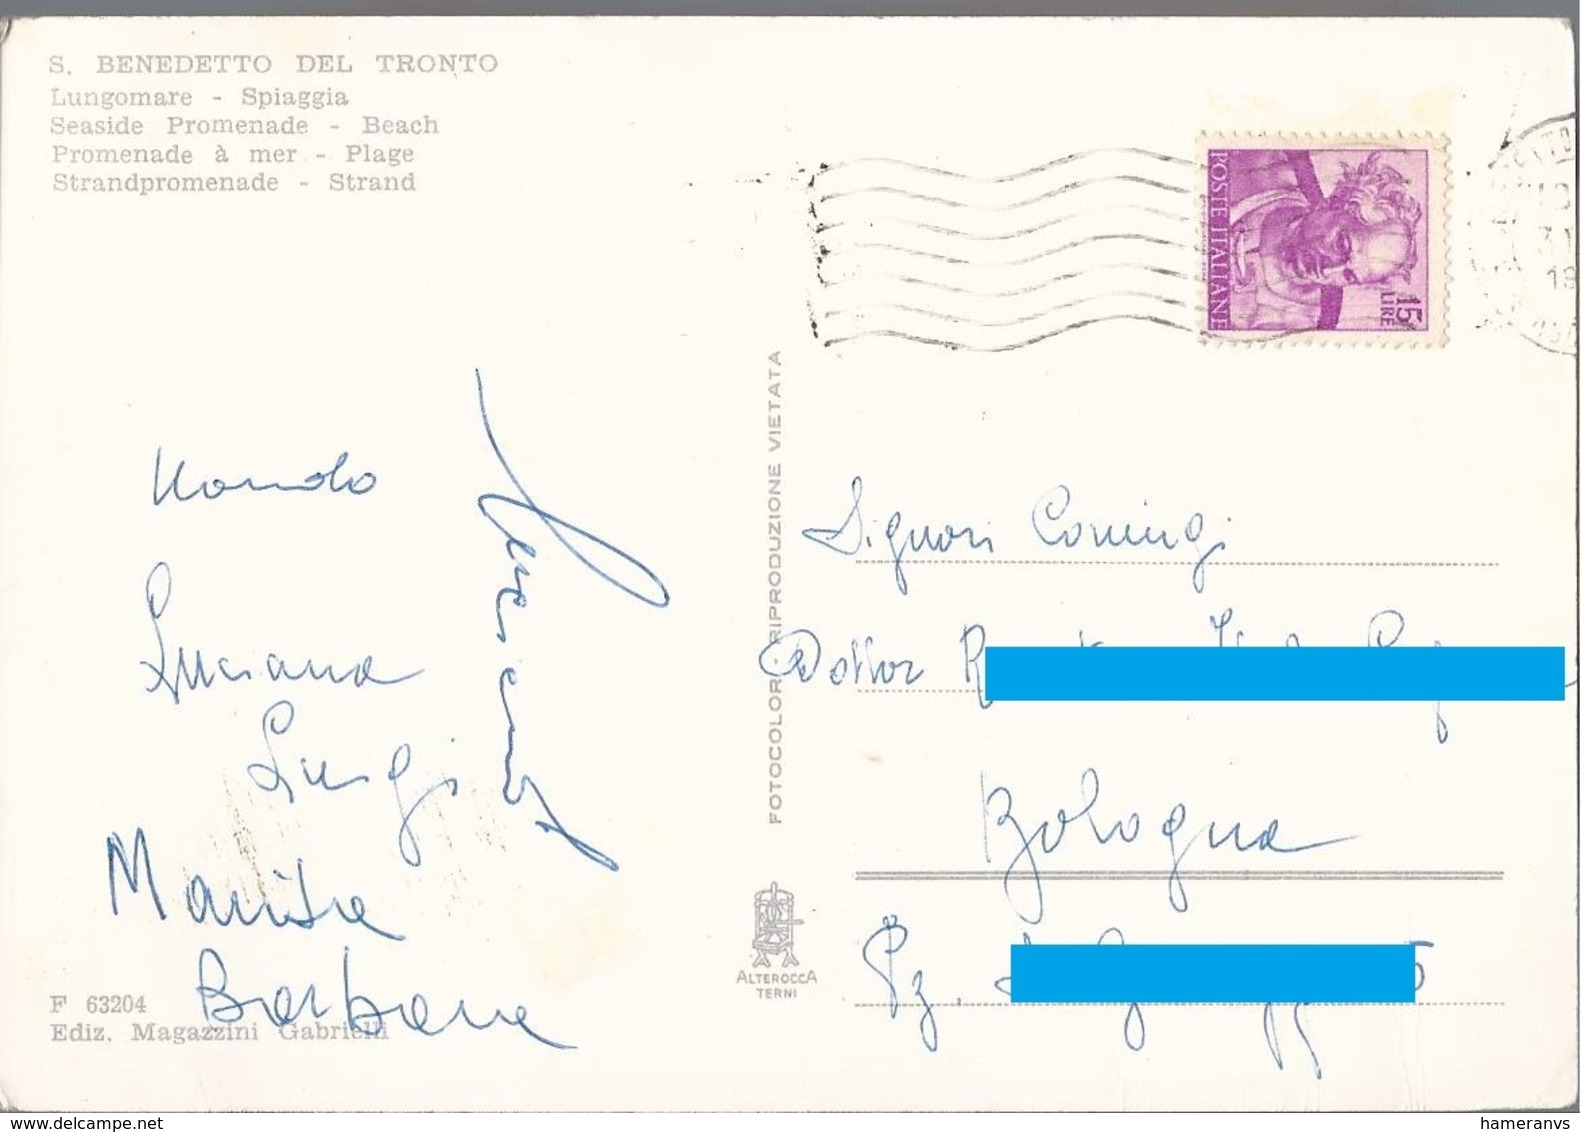 S. BENEDETTO DEL TRONTO
Lungomare - Spiaggia
Seaside Promenade - Beach
Promenade à mer - Plage
Strandpromenade - Strand
POSTE ITALIANE
15
LIRE
31
FOTOCOLOR - RIPRODUZIONE VIETATA
Luciana
Luigi
Marisa
Barbara
Signori
Dottor R
Bologna
Pz.
ALTEROCCA
TERNI
F 63204
Ediz. Magazzini Gabrielli
hameranvs
delcampe.net